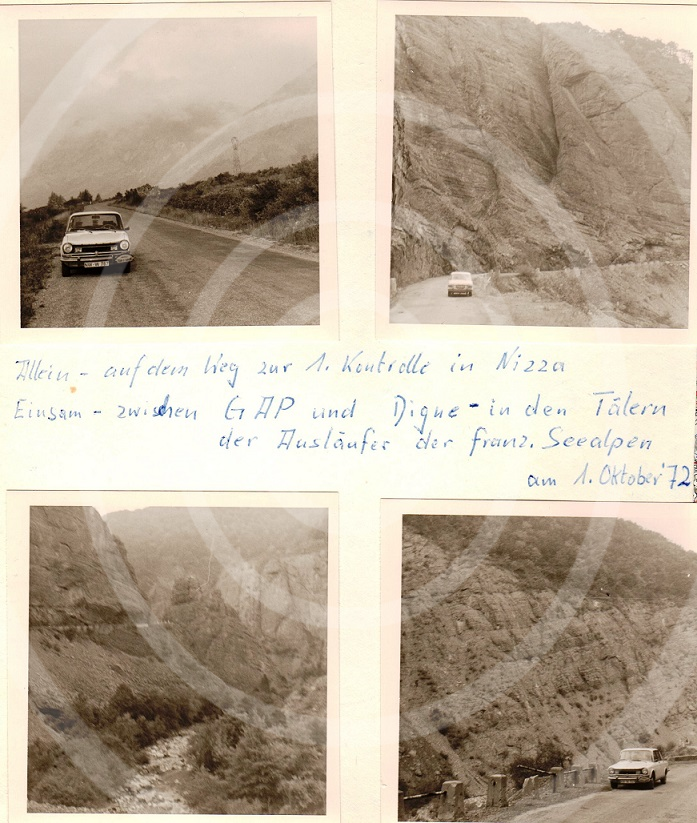 Allein - auf dem Weg zur 1. Kontrolle in Nizza
Einsam - zwischen GAP und Digne - in den Tälern
der Ausläufer der franz. Seealpen
am 1. Oktober '72